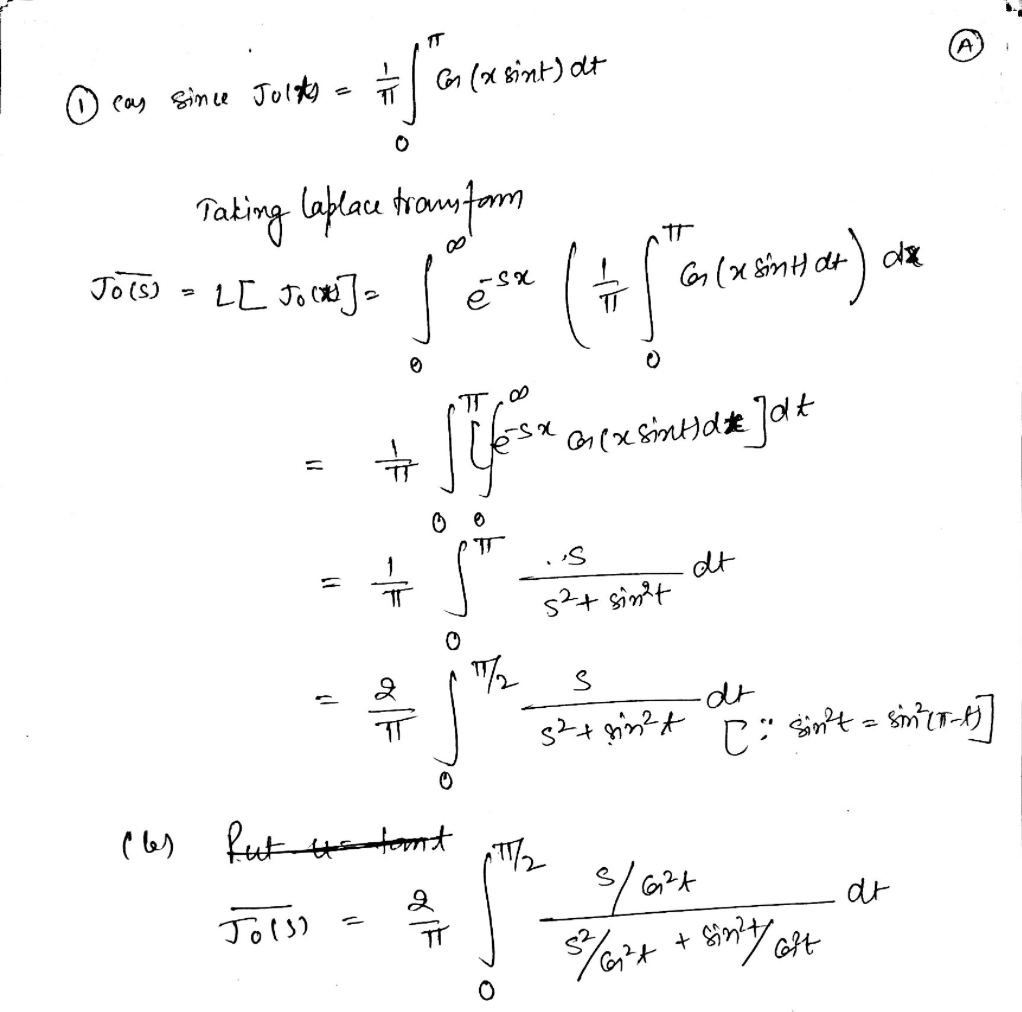 Ⓐ
① (a) Since J₀(x) = 1/π ∫₀^π Cos (x sint) dt
Taking laplace transform
J̅₀(s) = L[J₀(x)] = ∫₀^∞ e^-sx (1/π ∫₀^π Cos (x sint) dt) dx
= 1/π ∫₀^π [∫₀^∞ e^-sx Cos (x sint) dx] dt
= 1/π ∫₀^π s/(s² + sin²t) dt
= 2/π ∫₀^π/2 s/(s² + sin²t) dt [∵ sin²t = sin²(π-t)]
(b) Put u = tant
J̅₀(s) = 2/π ∫₀^π/2 (s/Cos²t)/(s²/Cos²t + sin²t/Cos²t) dt